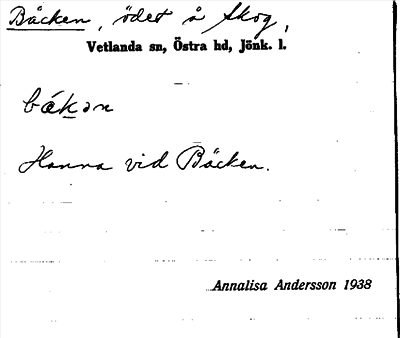 Bäcken, ödet å Skog,
Vetlanda sn, Östra hd, Jönk. l.
bákən
Hanna vid Bäcken.
Annalisa Andersson 1938